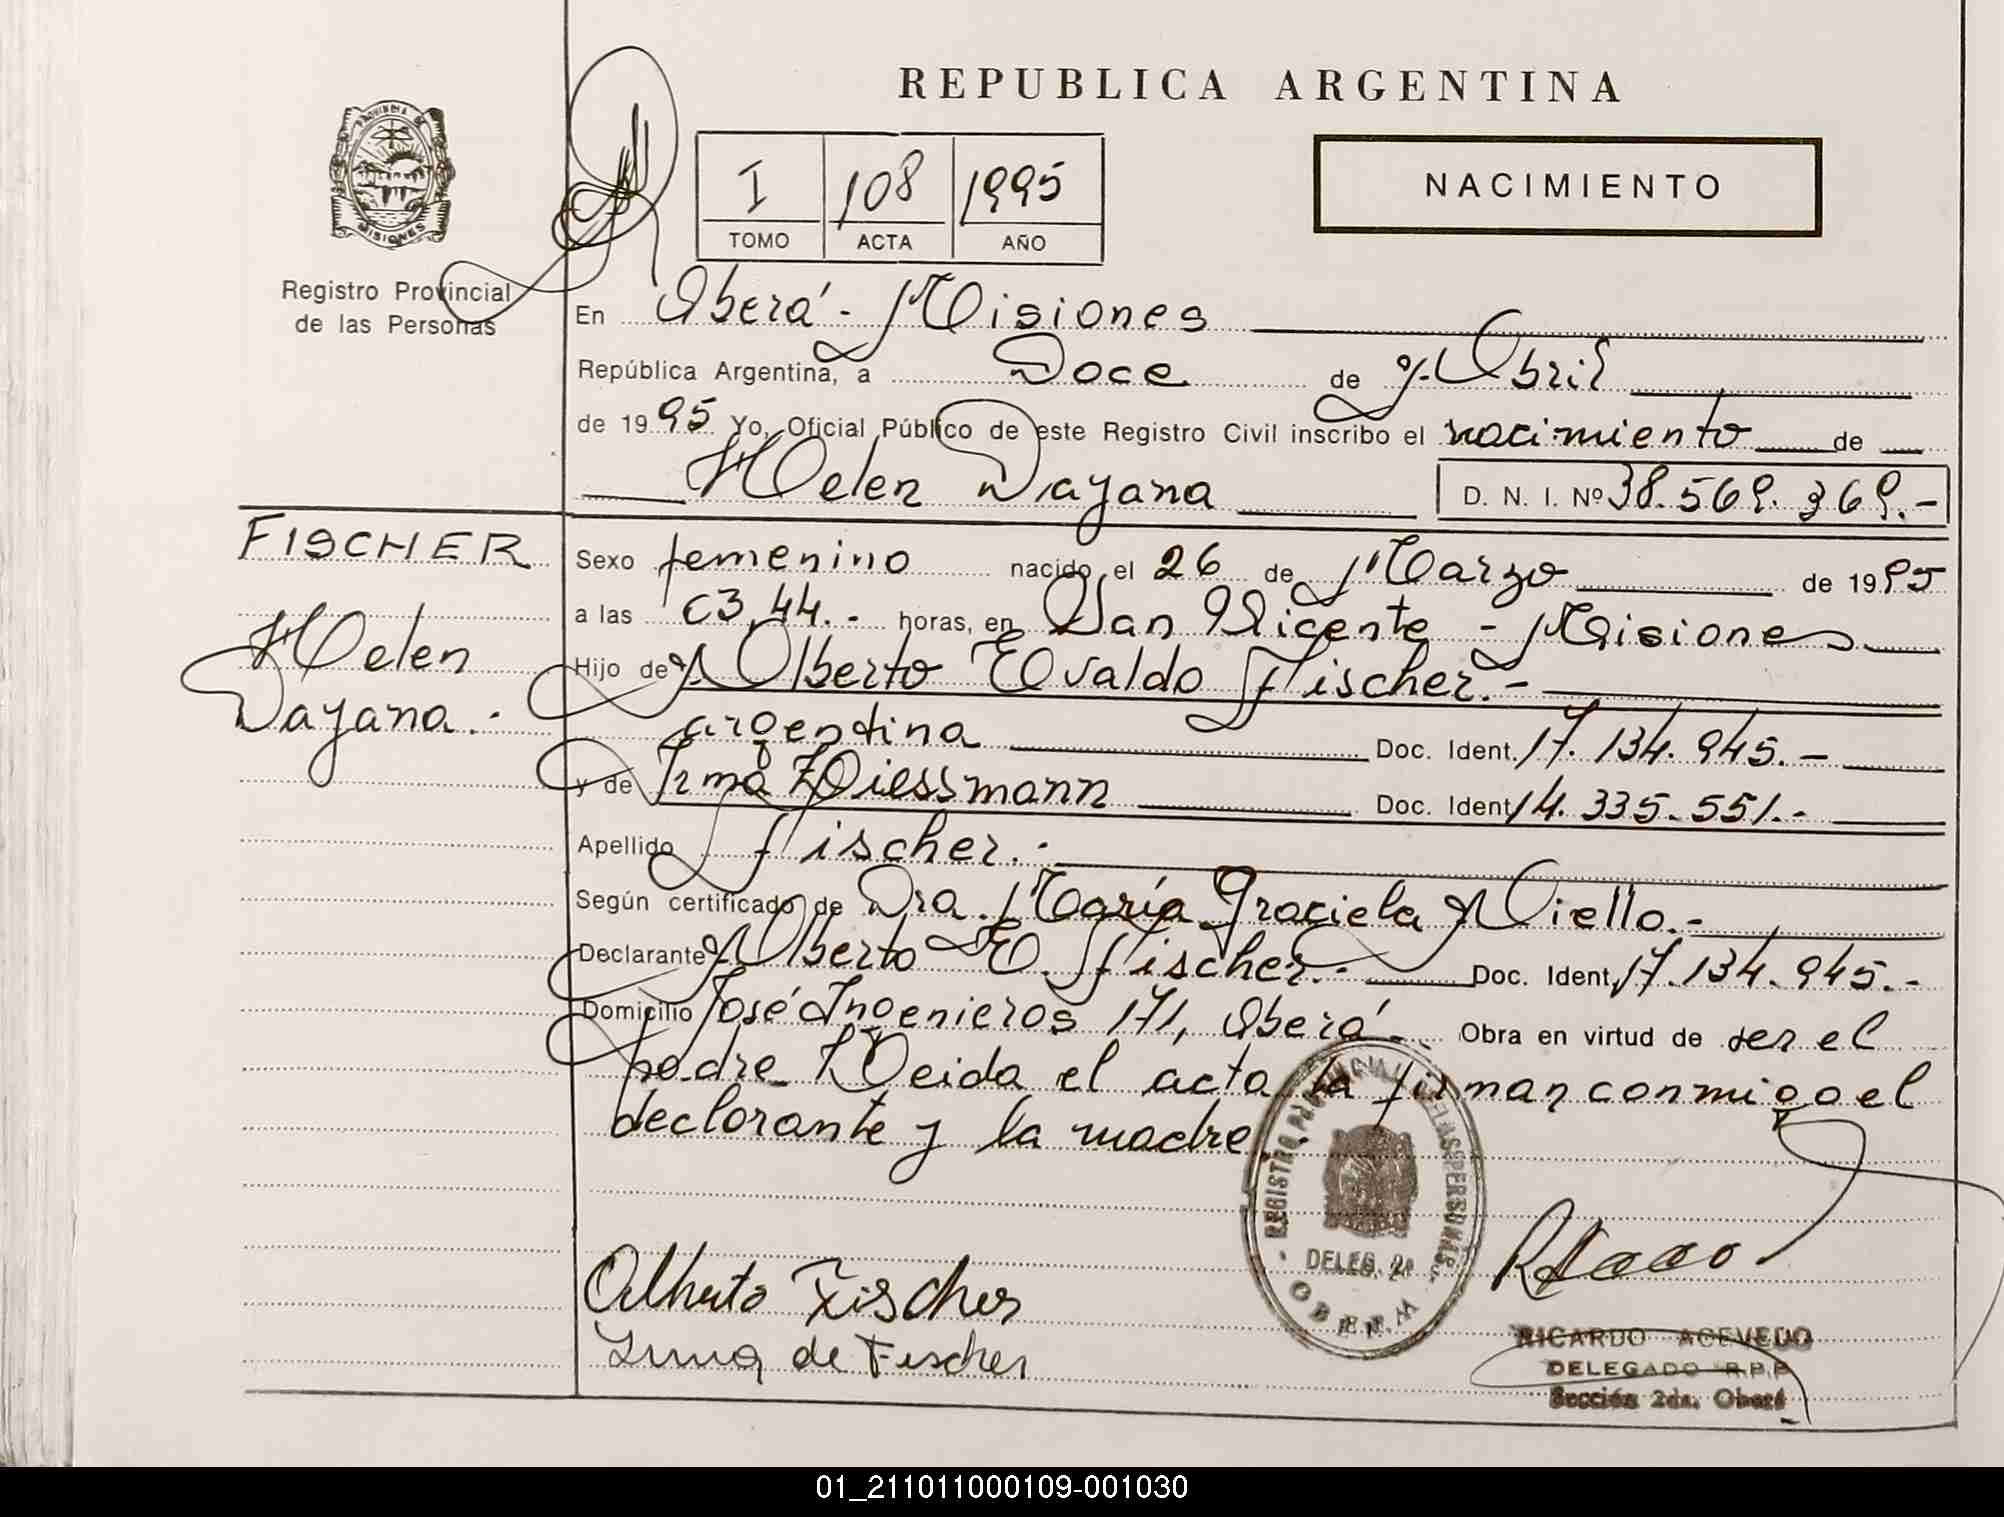 REPUBLICA ARGENTINA
PROVINCIA DE MISIONES
Registro Provincial
de las Personas
I 108 1995
TOMO ACTA AÑO
NACIMIENTO
En Oberá - Misiones
República Argentina, a Doce de Abril
de 1995 Yo, Oficial Público de este Registro Civil inscribo el nacimiento de
Helen Dayana D. N. I. Nº 38.569.369.-
FISCHER
Helen
Dayana.-
Sexo femenino nacido el 26 de Marzo de 1995
a las 03,44.- horas, en San Vicente - Misiones
Hijo de Alberto Evaldo Fischer.-
argentina Doc. Ident. 17.134.945.-
y de Irma Wiessmann Doc. Ident. 14.335.551.-
Apellido Fischer.-
Según certificado de Dra. María Graciela Aiello.-
Declarante Alberto E. Fischer.- Doc. Ident. 17.134.945.-
Domicilio José Ingenieros 171, Oberá.- Obra en virtud de ser el
padre Leida el acta la firman conmigo el
declarante y la madre.-
REGISTRO PROVINCIAL DE LAS PERSONAS
DELEG. 2ª
Alberto Fischer
Irma de Fischer
RICARDO ACEVEDO
DELEGADO R.P.P
Sección 2da. Oberá
01_211011000109-001030